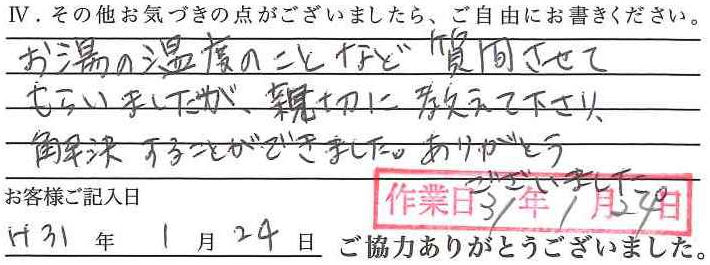 Ⅳ．その他お気づきの点がございましたら、ご自由にお書きください。
お湯の温度のことなど質問させて
もらいましたが、親切に教えて下さり、
解決することができました。ありがとう
ございました
お客様ご記入日
作業日31年1月24日
H31年1月24日 ご協力ありがとうございました。